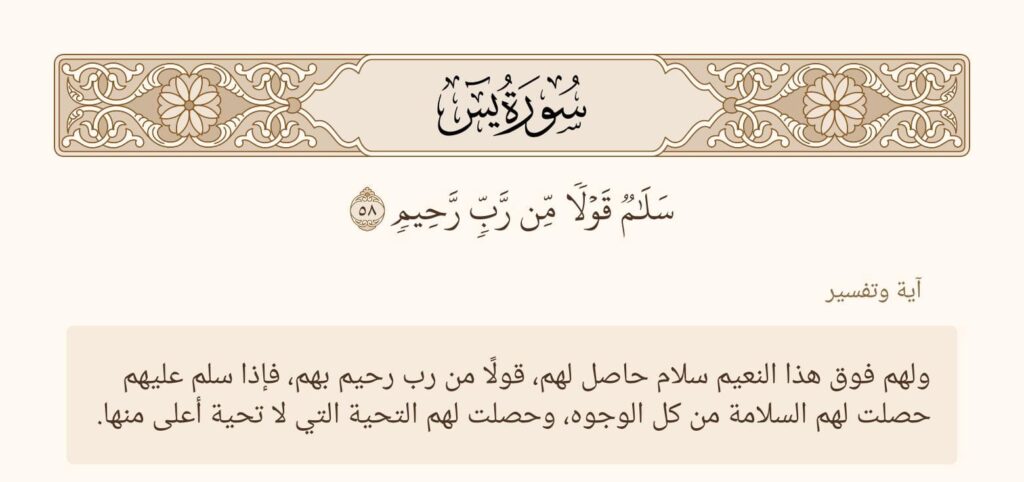 سُورَةُ يسٓ
سَلَٰمٌ قَوۡلًا مِّن رَّبٍّ رَّحِيمٍ ٥٨
آية وتفسير
ولهم فوق هذا النعيم سلام حاصل لهم، قولًا من رب رحيم بهم، فإذا سلم عليهم
حصلت لهم السلامة من كل الوجوه، وحصلت لهم التحية التي لا تحية أعلى منها.